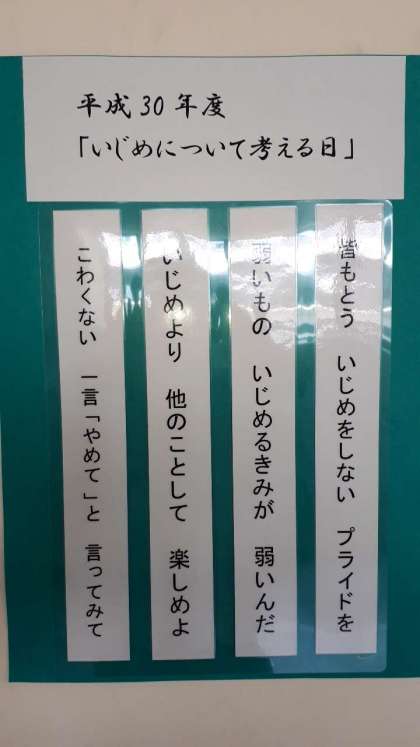 平成30年度
「いじめについて考える日」
皆もとう いじめをしない プライドを
弱いもの いじめるきみが 弱いんだ
いじめより 他のことして 楽しめよ
こわくない 一言「やめて」と 言ってみて